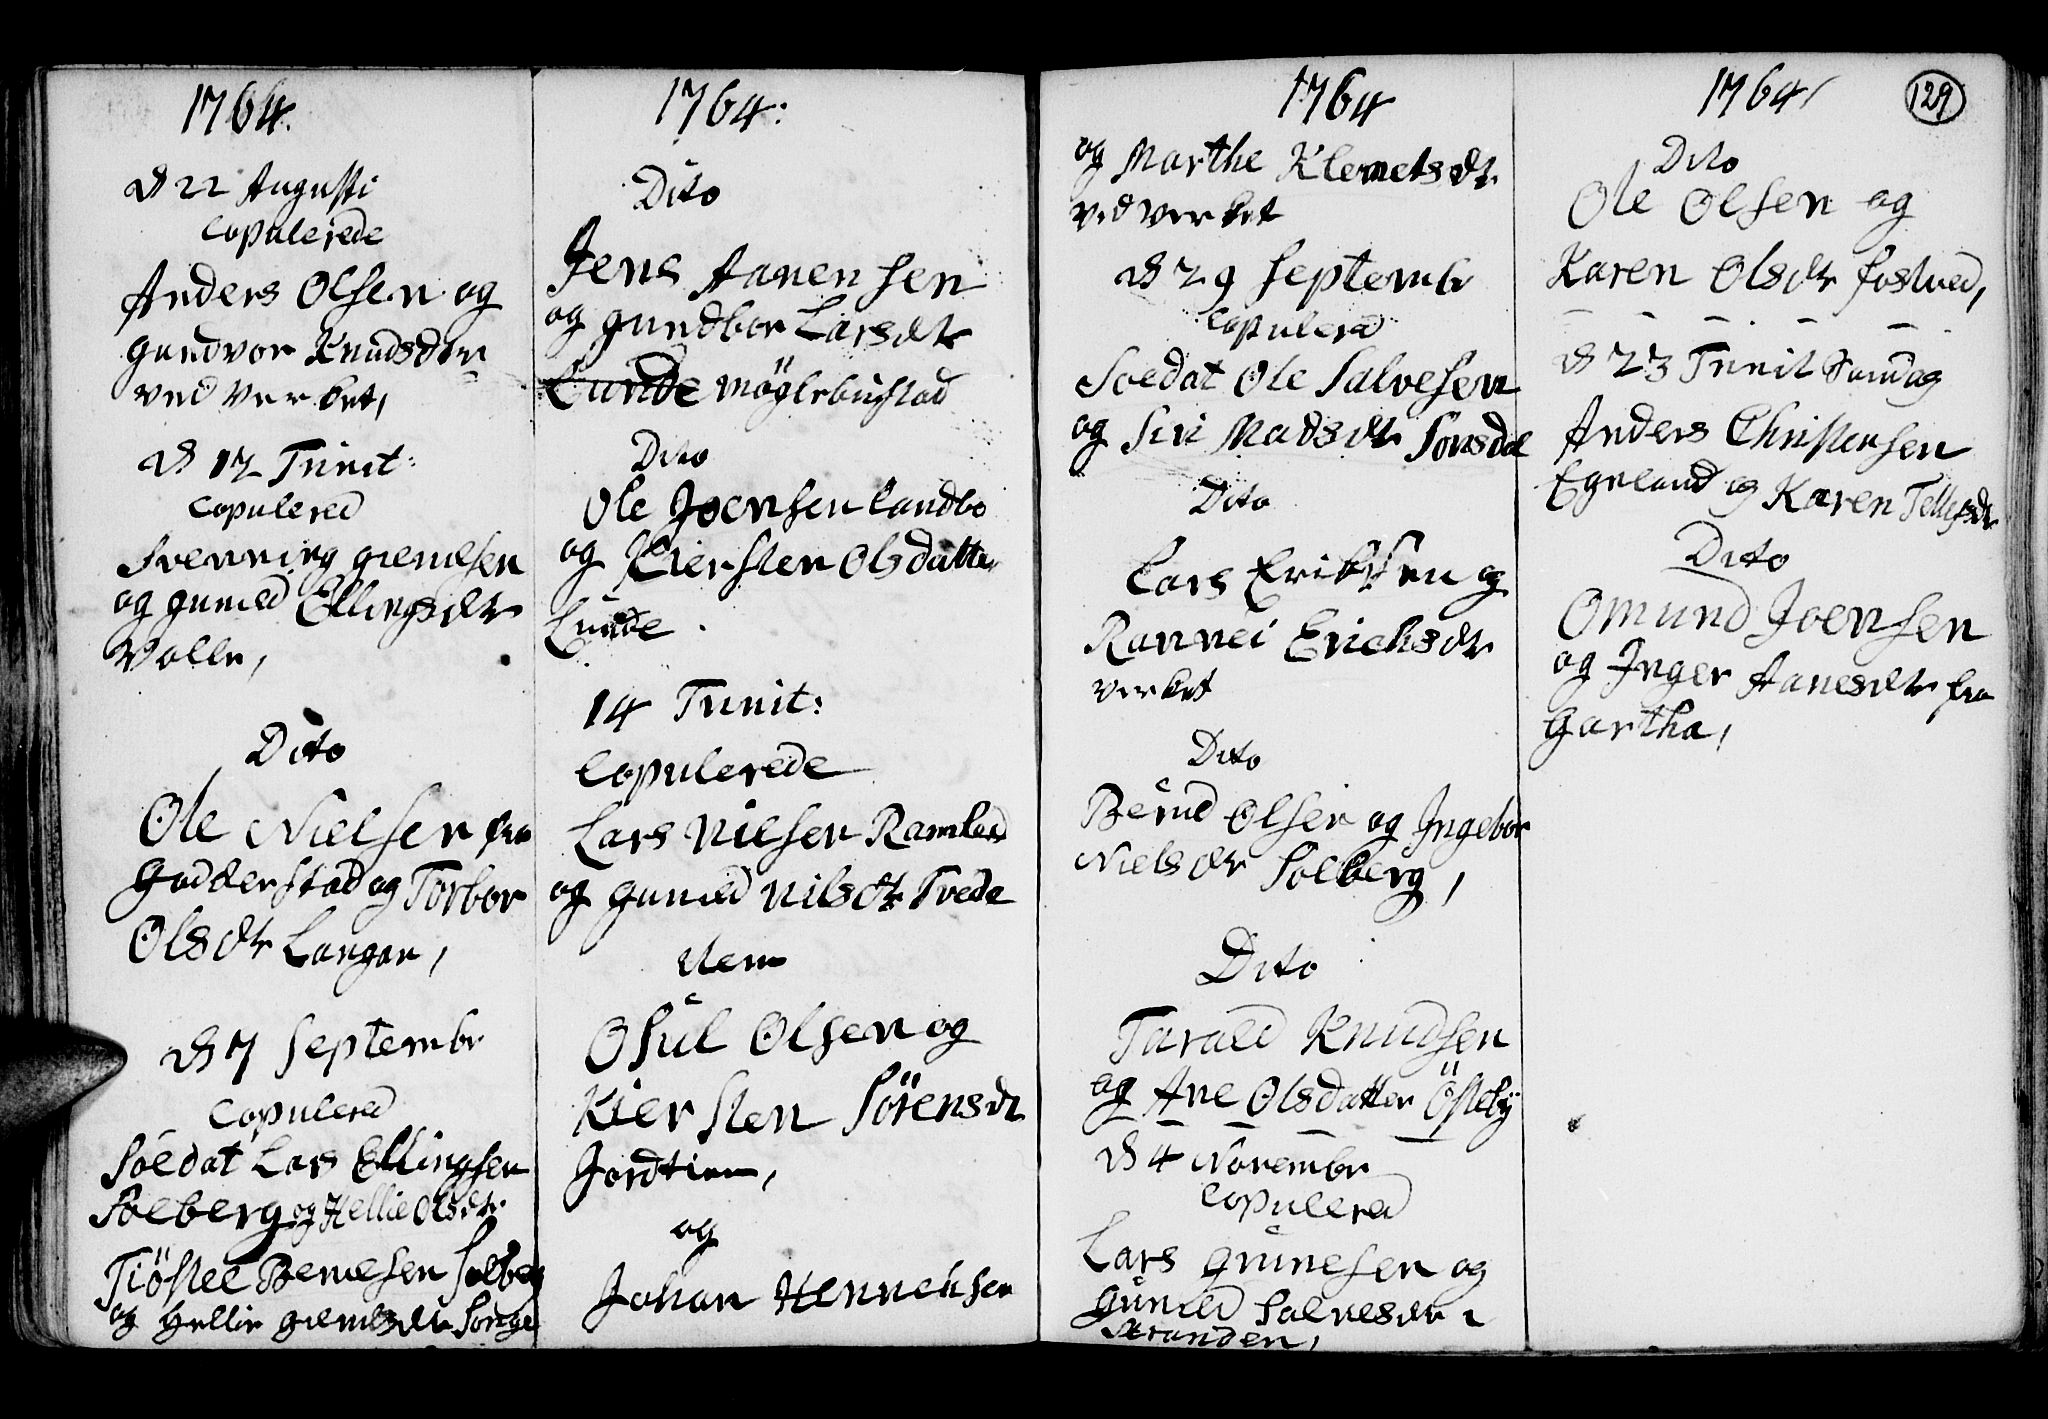 1764.
D 22 Augusti
Copulerede
Anders Olsen og
gundvor Knudsdtr
ved Verket,
D 12 Trinit:
Copulered
Svenning
og guned Ellingsdtr
Valle,
Dito
Ole Nielsen fra
Gadderstad og Torbor
Olsdtr Langan,
D 7 Septembr
Copulered
Soldat Lars Ellingsen
Solberg og Hellie Olsdtr.
Tiöstel Berulsen Solberg
og Hellie
1764:
Dito
Jens Aanensen
og gundbor Larsdtr
Lunde Möglebustad
Dito
Ole Joensen Landbo
og Kiersten Olsdatter
Lunde.
14 Trinit:
Copulerede
Lars Nilsen
og guned Nilsdtr Trede
Item
Osul Olsen og
Kiersten Sörensdt
Jordtien,
og
Johan Hennensen
1764
og Marthe Klemetsdtr
ved verket
D 29 Septembr
Copulered
Soldat Ole Salvesen
og Siri Madsdtr Sonsdal
Dito
Lars Eriksen og
Rannei Erichsdtr
verket
Dito
Berul Olsen og Ingebor
Nielsdtr Solberg,
Dito
Tarald Knudsen
og Ane Olsdatter Östeby
D 4 Novembr
Copulered
Lars Grunesen og
Guned Salvesdtr
Stranden,
1764
129
Dito
Ole Olsen og
Karen Olsdtr fostved,
D 23 Trinit Sundag
Anders Christensen
Egeland og Karen Tellefsdtr
Dito
Omund Joensen
og Inger Aanesdtr fra
Gartha,